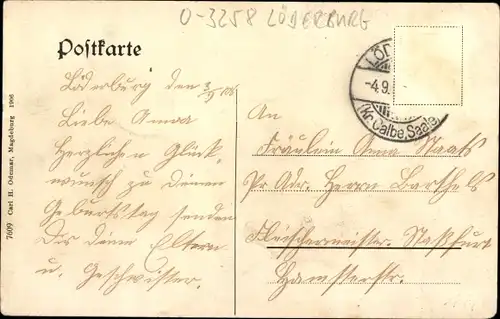 O-3258 LÖDERBURG
Postkarte
LÖD
-4.9.
(Kr. Calbe, Saale)
Löderburg den 3/9 06
Liebe Anna
Herzlichen Glück-
wunsch zu Deinem
Geburtstag senden
Dir Deine Eltern
u. Geschwister.
An
Fräulein Anna Staats
Pr. Adr. Herrn Barthels
Fleischermeister. Staßfurt
Hamsterstr.
7609 Carl H. Odemar, Magdeburg 1906